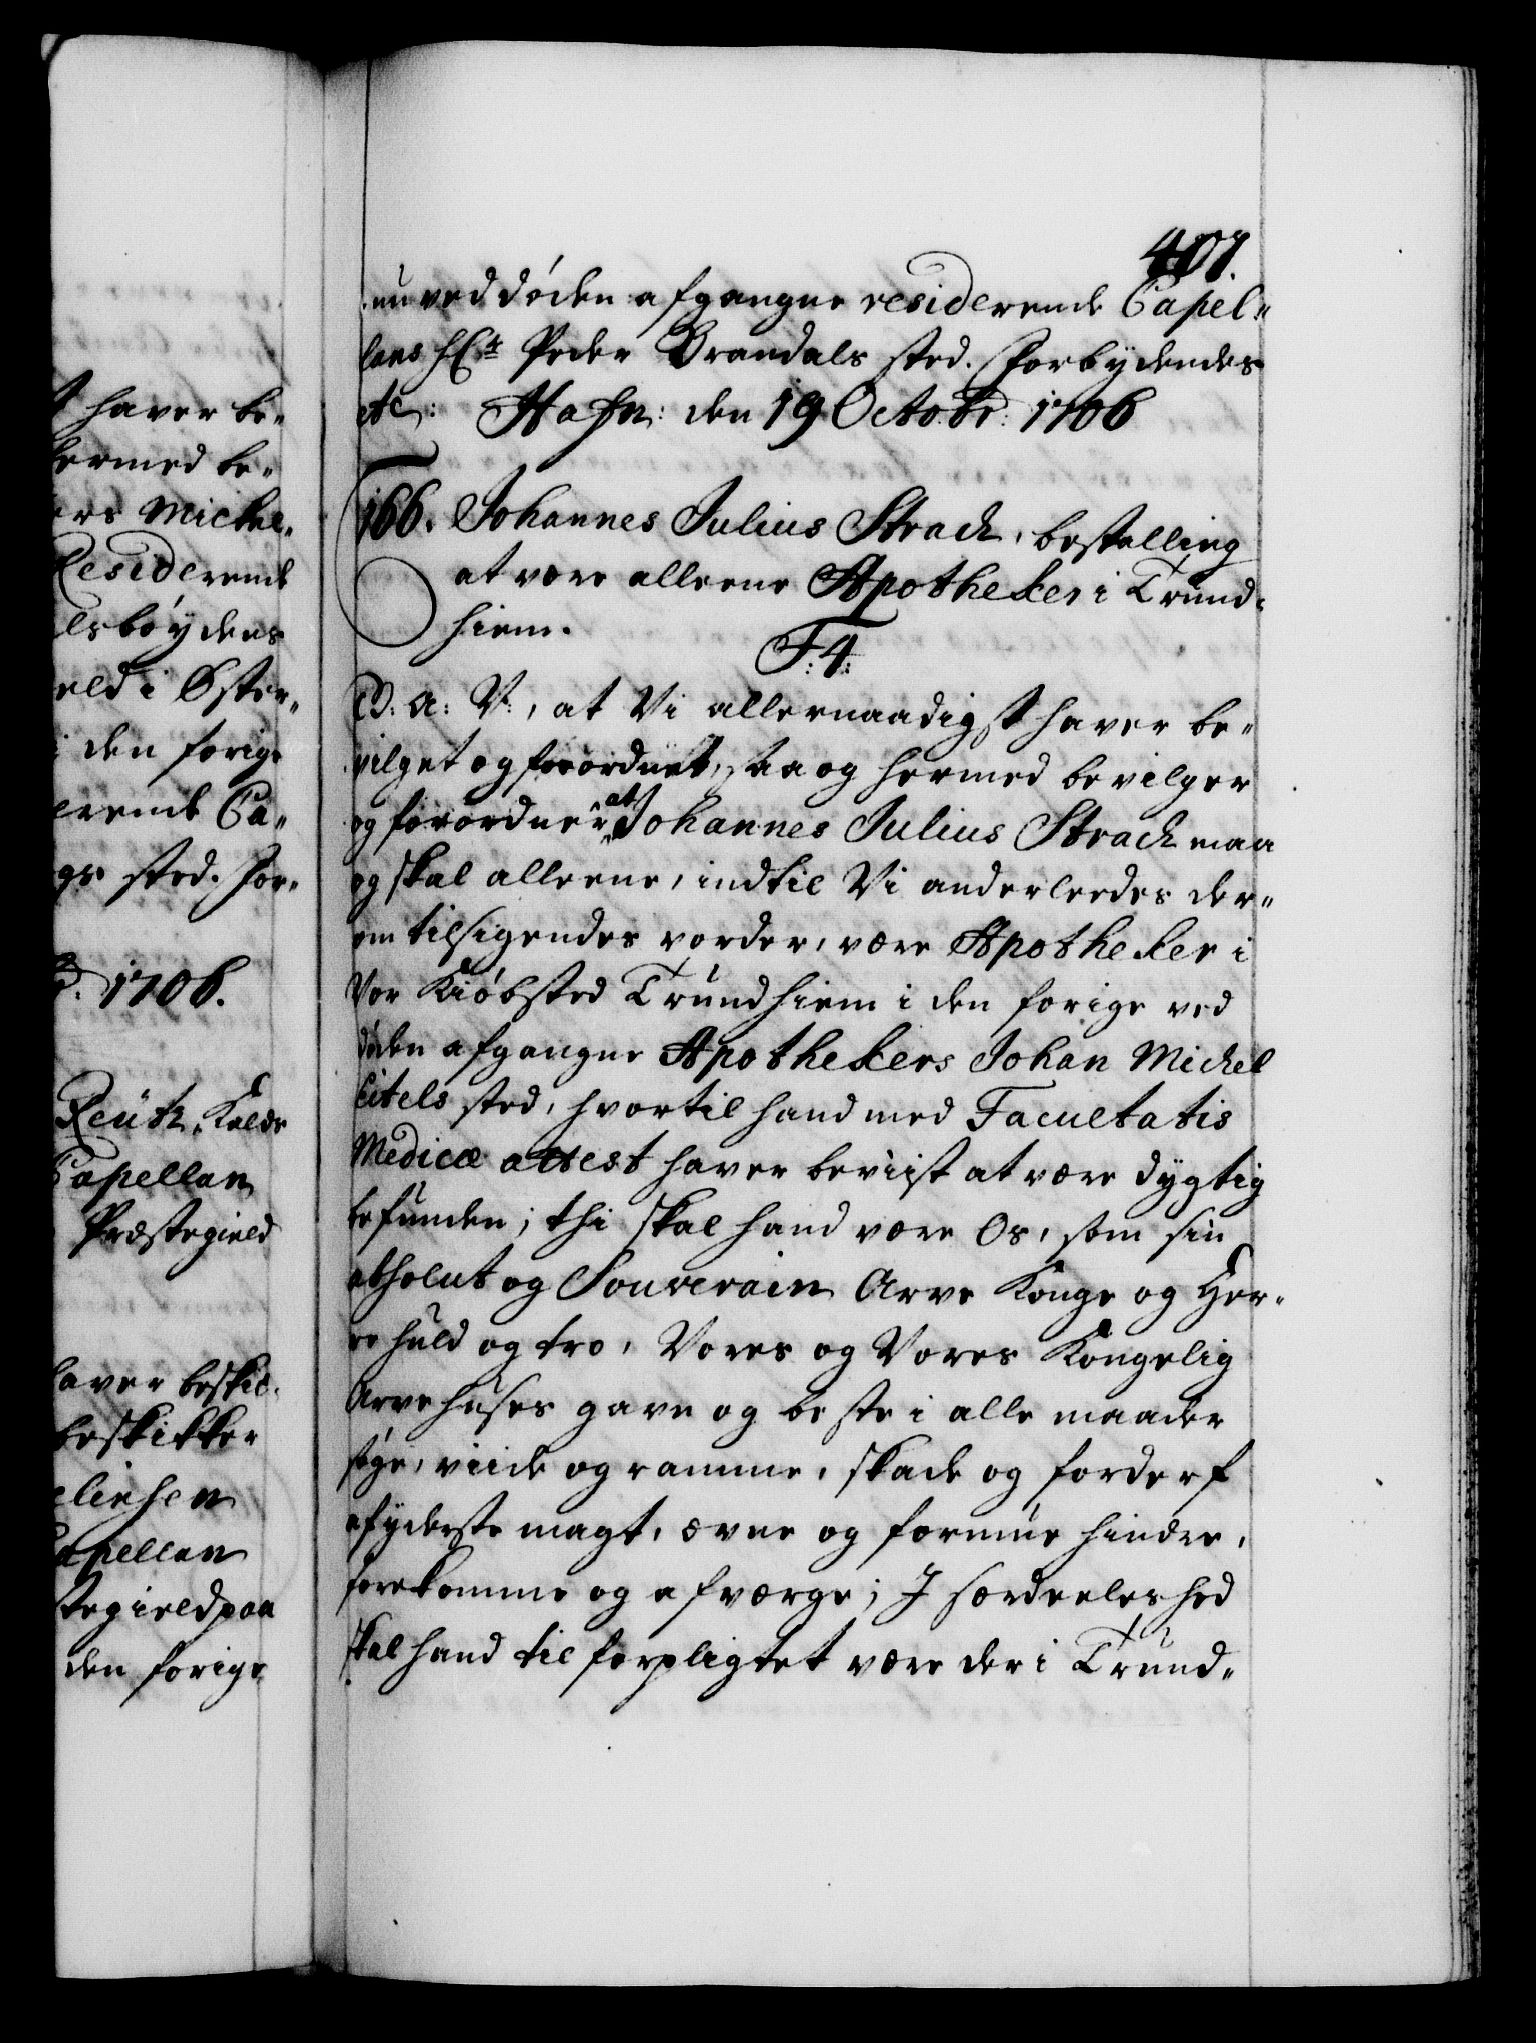 407.
nu ved døden afgangne residerende Capel„
lans Hr Peder Brandals sted. Forbydendes
etc: Hafn: den 19 Octobr: 1706
166. Johannes Julius Strach, bestalling
at være alleene Apotheker i Trund„
hiem.
F:4:
G: a: V:, at Vi allernaadigst haver be„
vilget og forordnet, saa og hermed bevilger
og forordner at Johannes Julius Strach maa
og skal alleene, indtil Vi anderleedes der„
om tilsigendes vorder, være Apotheker i
Vor Kiøbsted Trundhiem i den forige ved
døden afgangne Apothekers Johan Michel
Eitels sted, hvortil hand med Facultatis
Medicæ attest haver beviist at være dygtig
befunden; thi skal hand være Os, som sin
absolut og Souverain Arve Konge og Her„
re huld og tro, Vores og Vores Kongelig
Arvehuses gavn og beste i alle maader
søge, viide og ramme, skade og forderf
afyderste magt, ævne og formue hindre,
forekomme og afværge; I særdeeleshed
skal hand til forpligtet være der i Trund„
haver be„
hermed be„
Michel
Residerende
lsbøydens
eld i Øster„
i den forige
erende Ca„
sted. For„
1706.
Reutz, Kalds
Capellan
Præstegield
haver beskic„
beskikker
Capellan
stegield paa
den forige